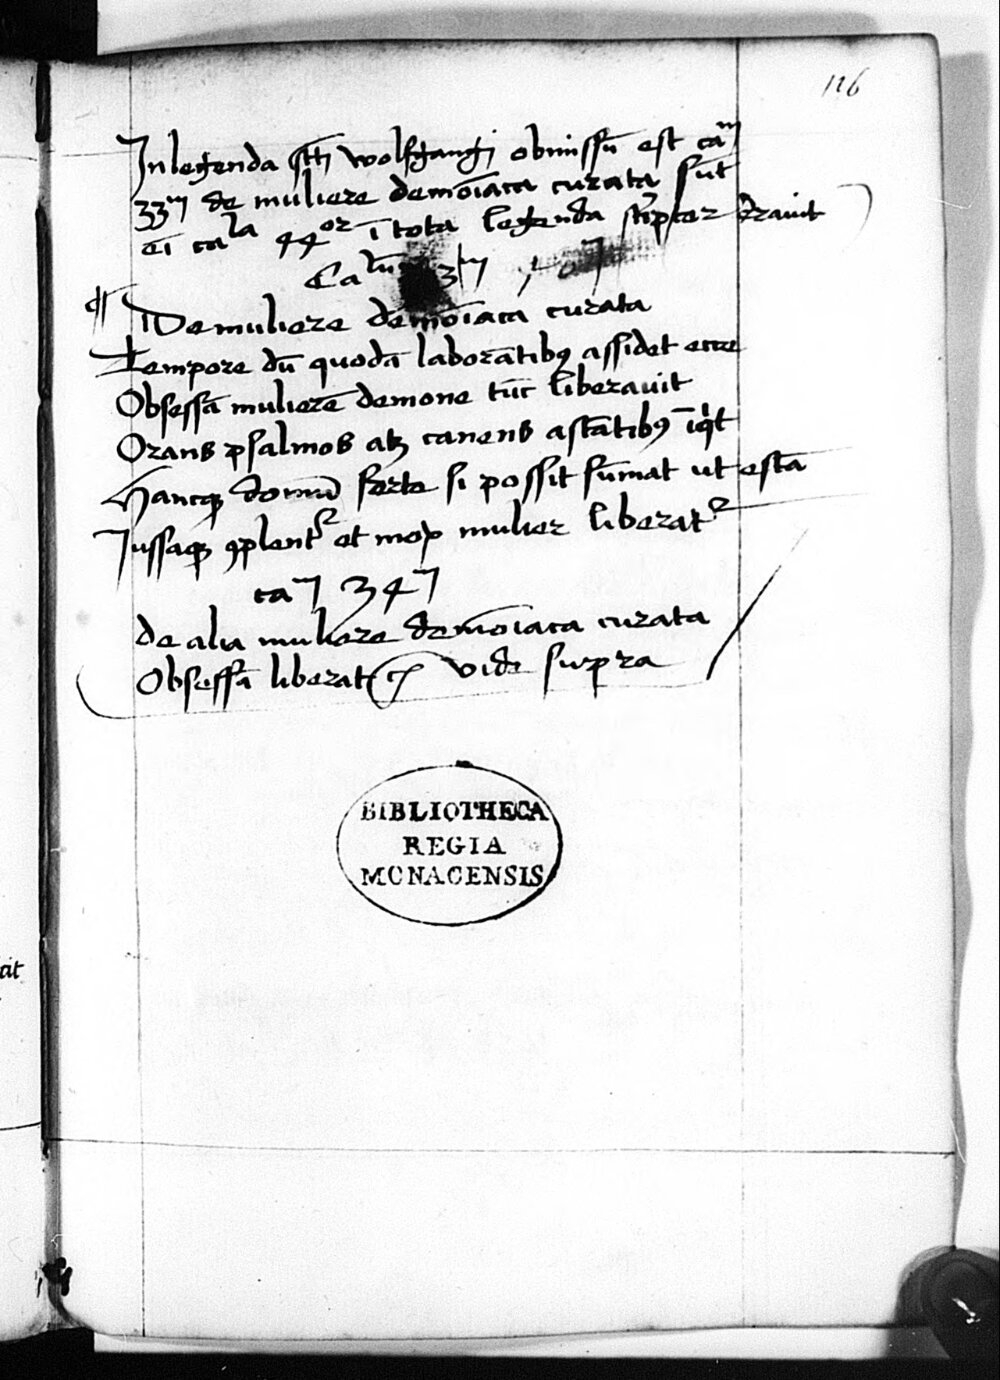 126
In legenda sti wolfgangi obmissū est cam
33m de muliere demōiaca curata sūt
ei cala 44or ī tota legenda scriptor eravit
Calm 3m
De muliere demōiaca curata
Tempore dū quodā laborātibꝯ assidet ecce
Obsessā mulierē demone tūc liberavit
Orans psalmos atqꝫ canens astātibꝯ īqͥt
Hancqꝫ domū forte si possit sūmat ut escā
Jussaqꝫ ꝯplentr et mox mulier liberatr
cam 34m
de alia muliere demōiaca curata
Obsessā liberat vide supra
BIBLIOTHECA
REGIA
MONACENSIS